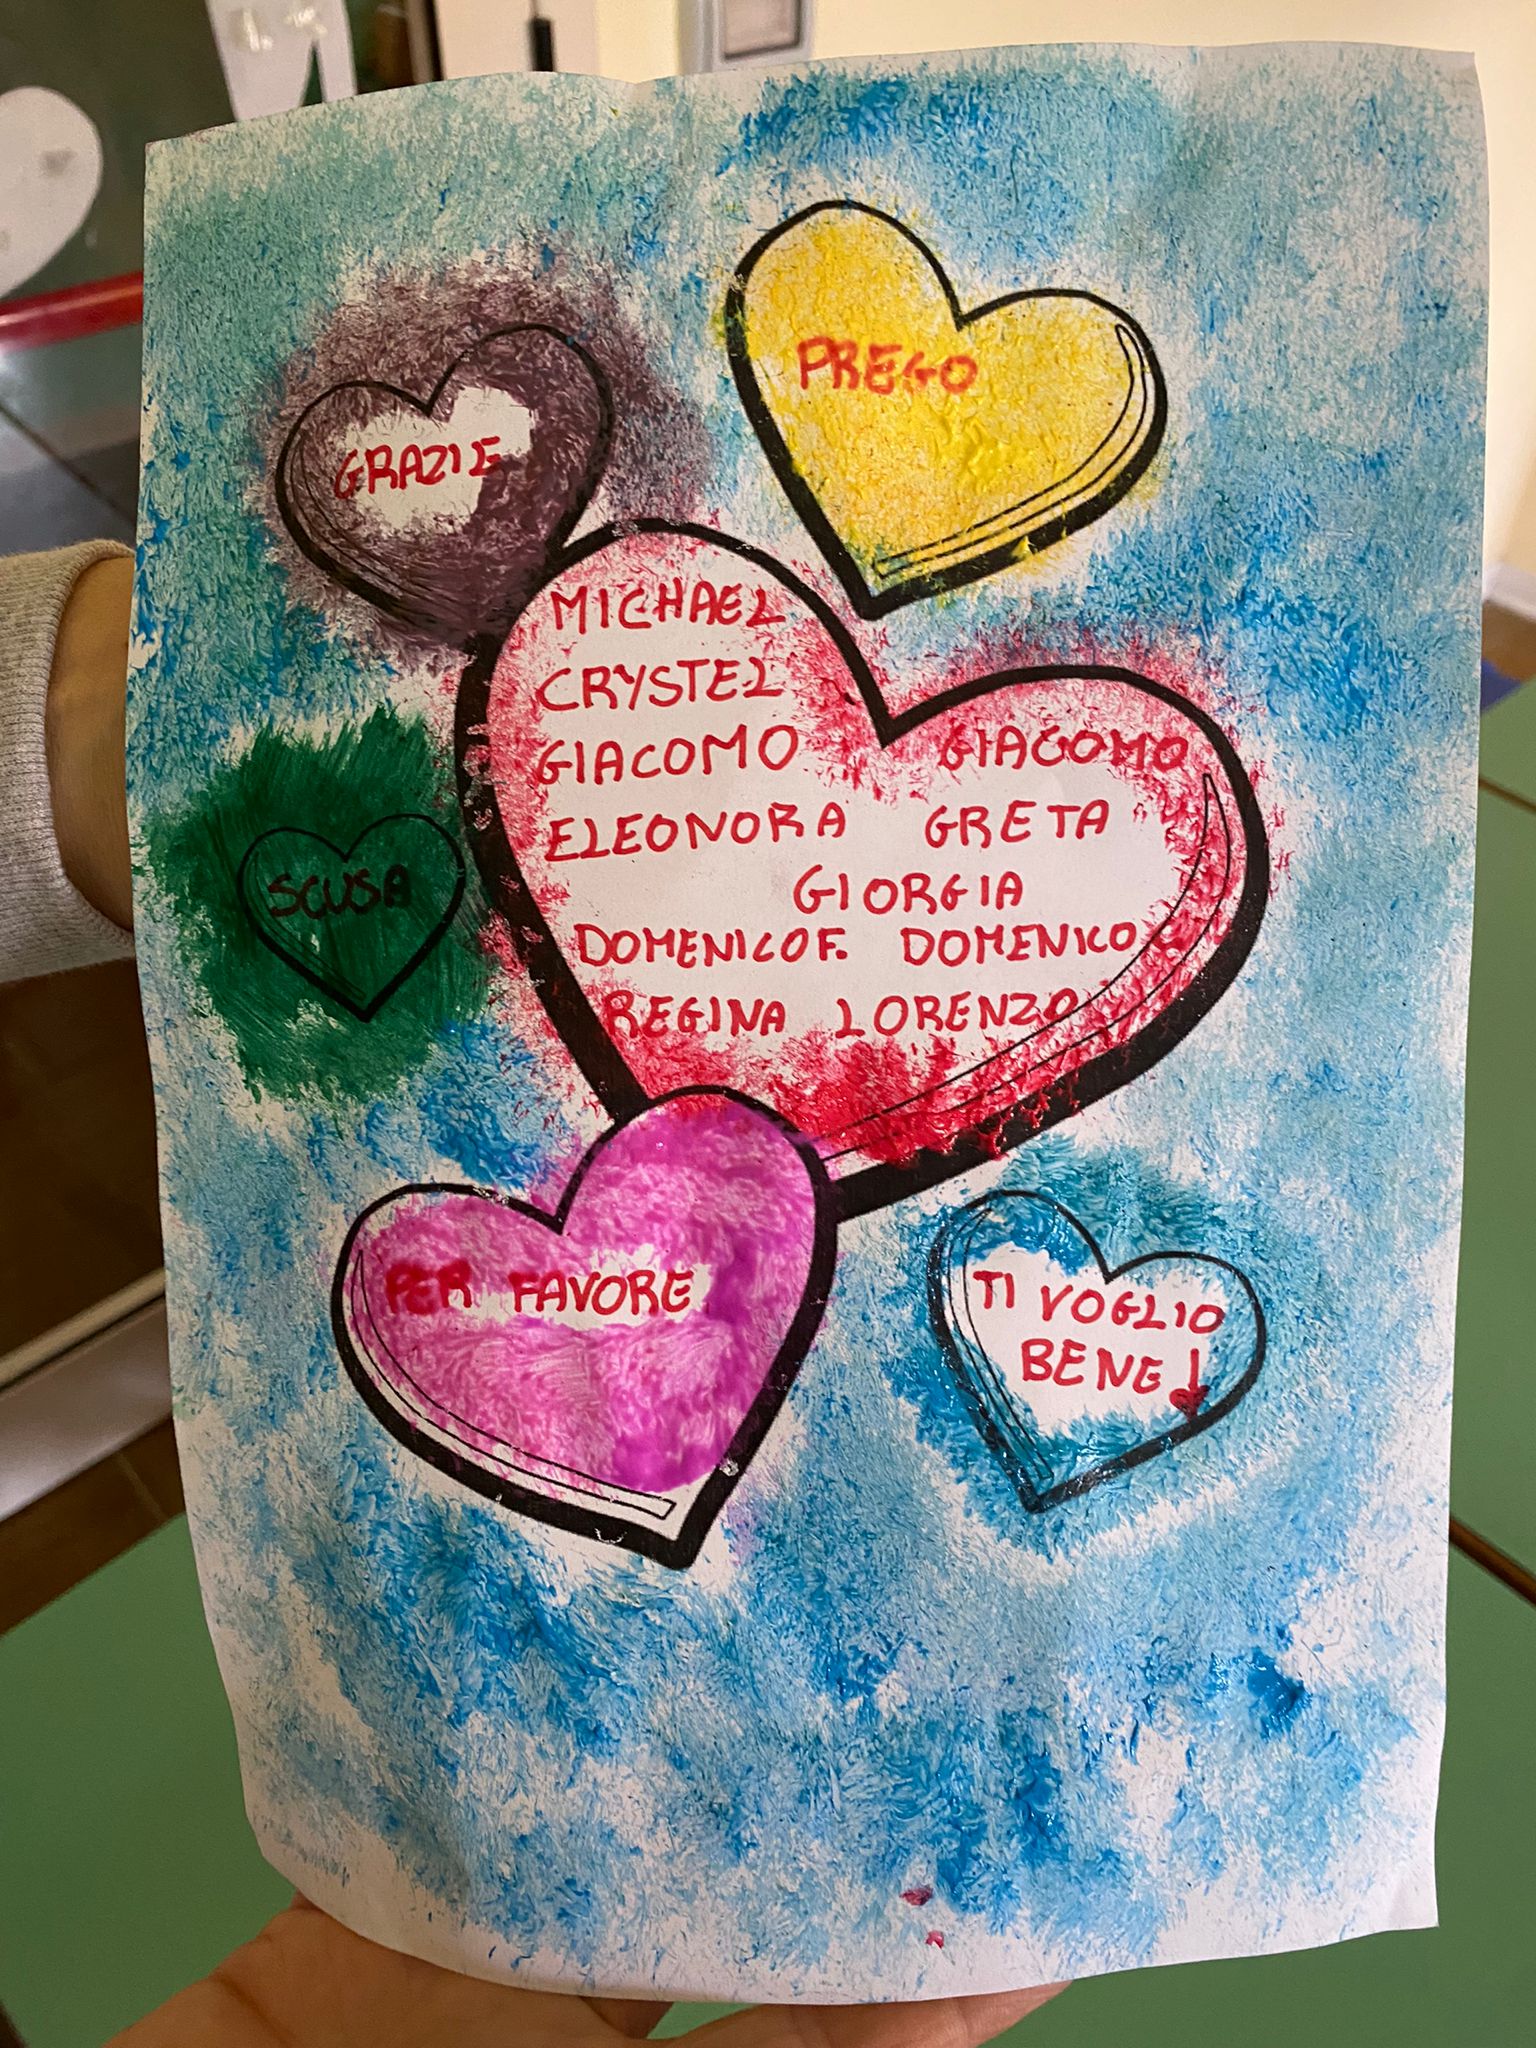 PREGO
GRAZIE
MICHAEL
CRYSTEL
GIACOMO GIACOMO
ELEONORA GRETA
GIORGIA
DOMENICO F. DOMENICO
REGINA LORENZO
SCUSA
PER FAVORE
TI VOGLIO
BENE!